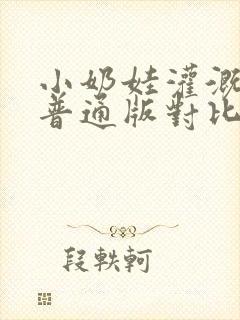 小奶娃灌溉
普通版對比
段軼軻